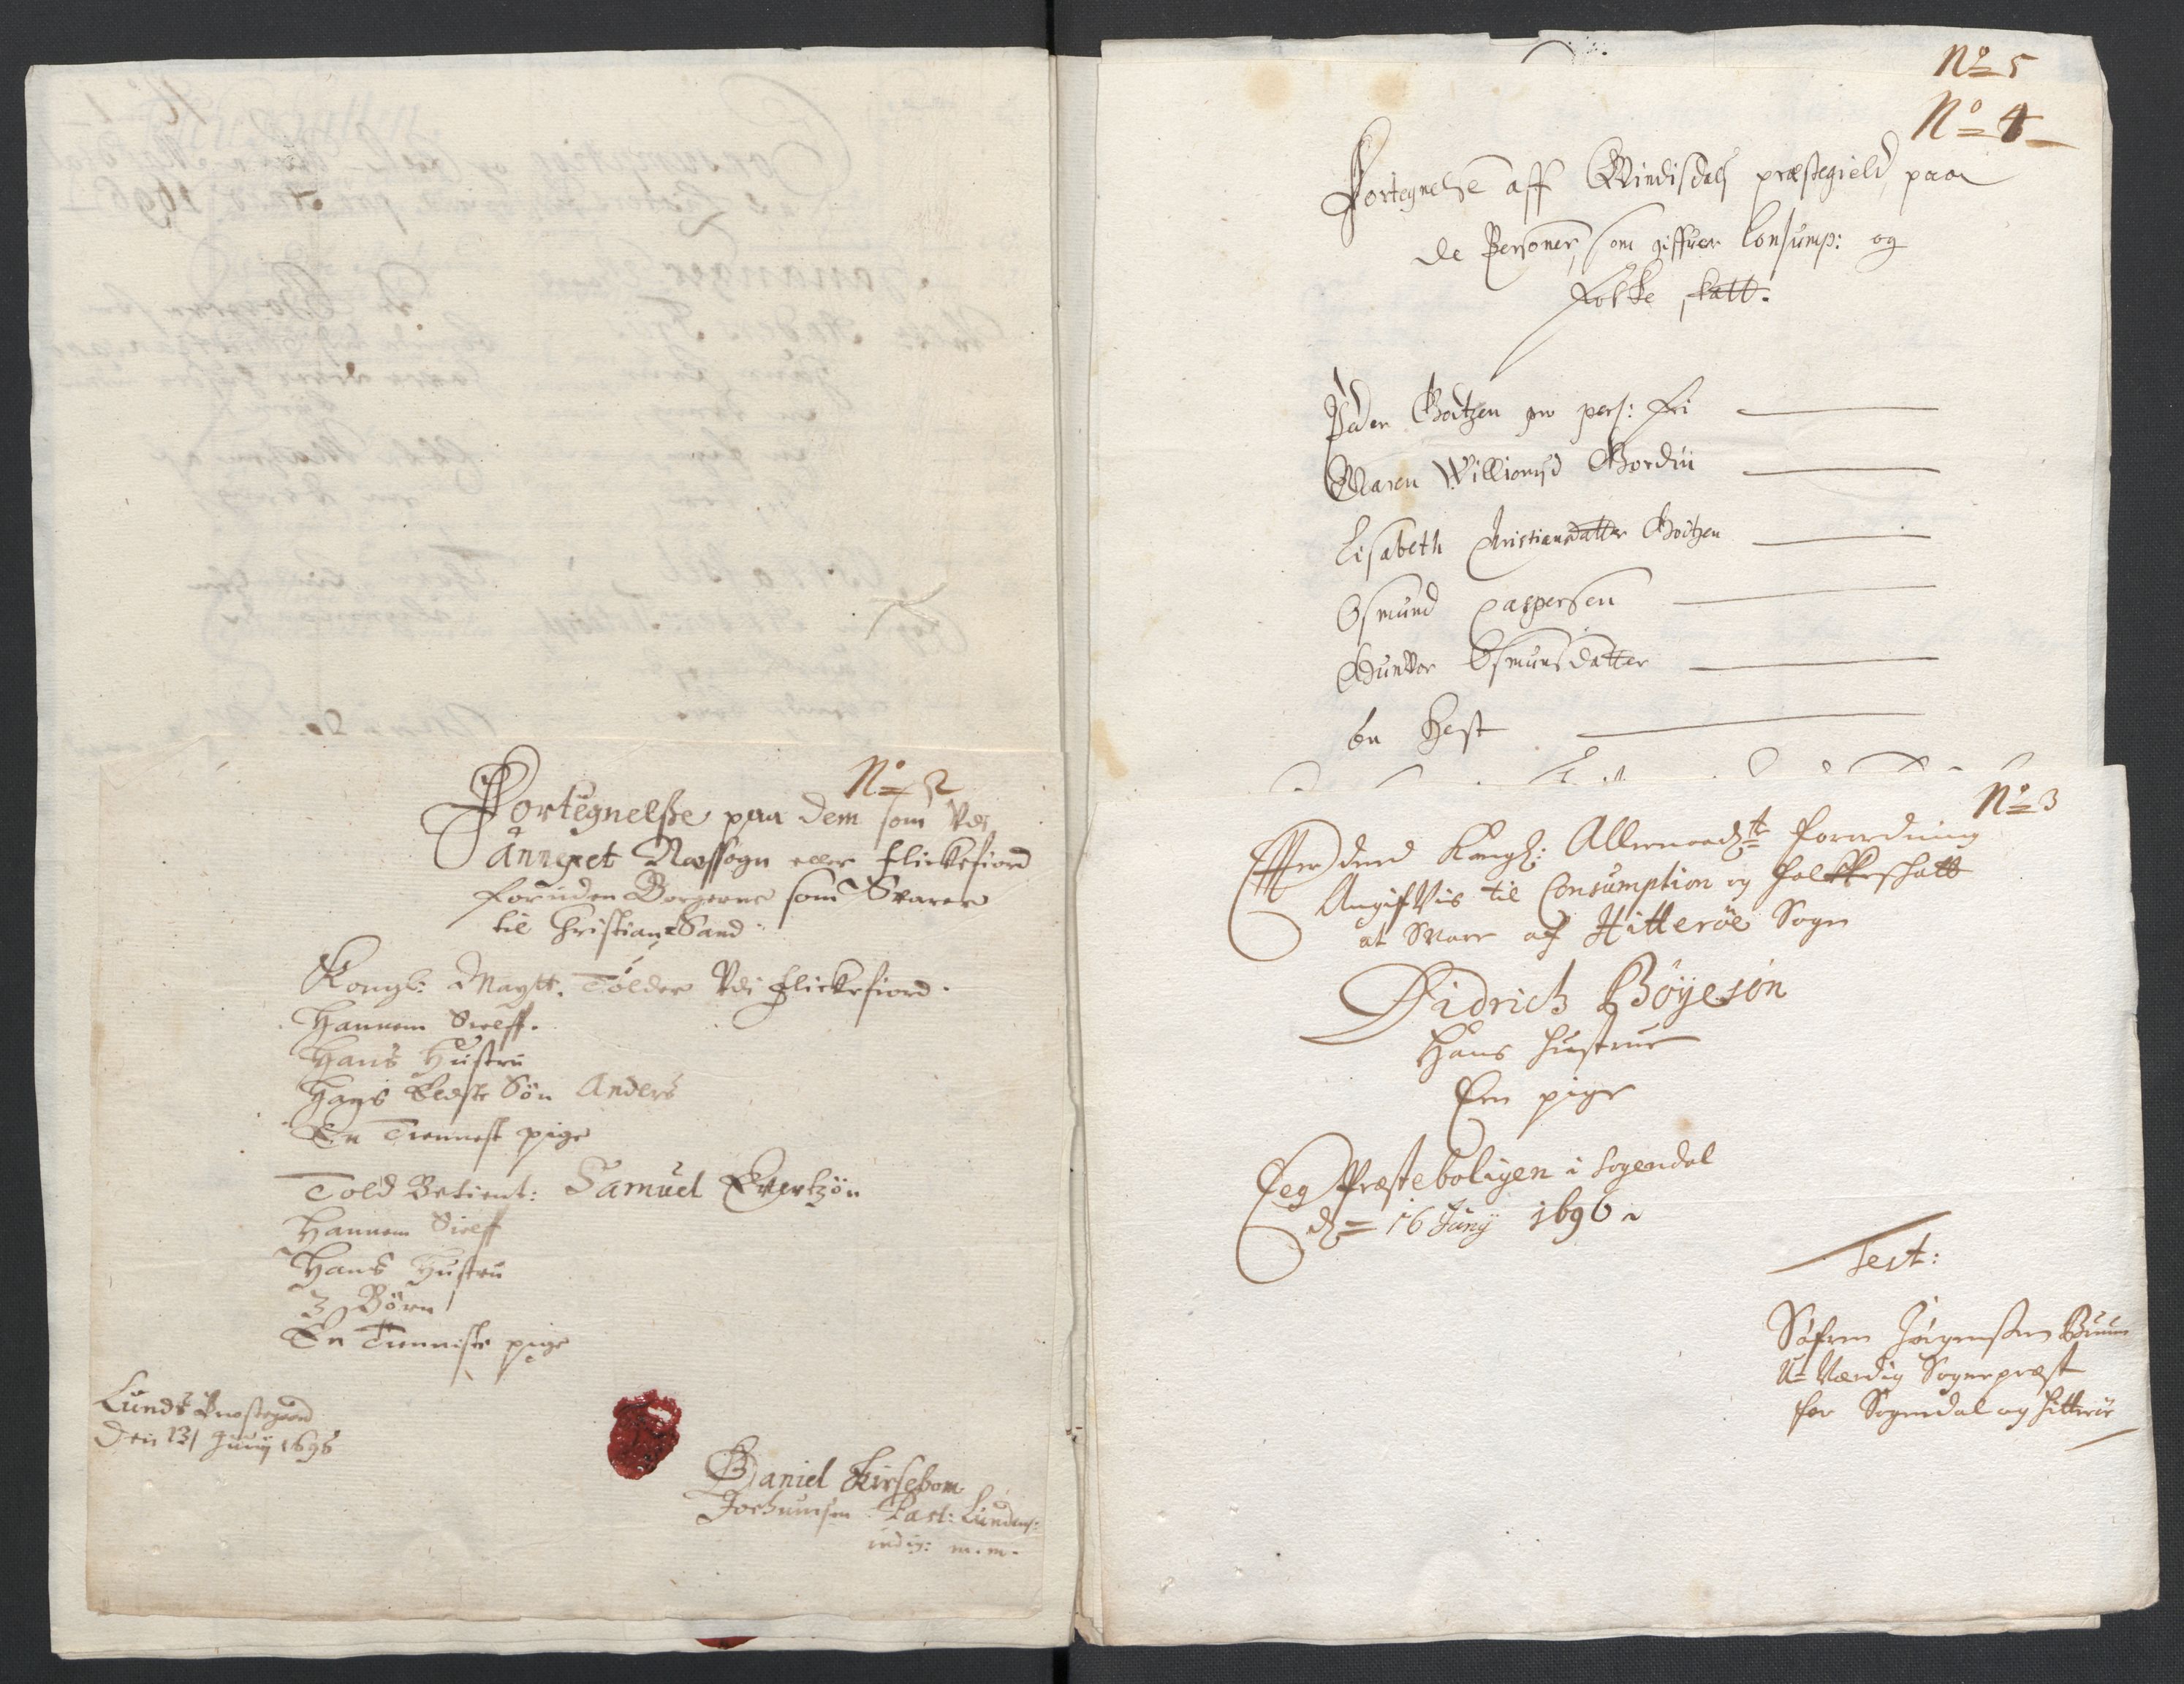 No 2
Fortegnelsse paa dem som Udi
Annexet Næssogn eller Flickefiord
foruden Borgerne som Svarer
til ChristianSand
Kongl: Maytt. Tolder Udi Flickefiord.
Hannem Sielff.
Hans Hustru
Hans Eldste Sön Anders
En Tienneste pige
Told Betient: Samuel Evertzön
Hannem Sielff
Hans Hustru
3 Börn
En Tienniste pige
Lunds Præstegaard
Den 13 Junij 1696
Daniel Kirsebom
Jochumsen Past: Lundens:
indig: m.m.
No 5
No 4
Fortegnelse aff Qvindisdals præstegield paa
de Personer, som giffver Consump: og
Folke skatt.
Peder Boitzen pr pers: fri
Maren Williomsd Bordin
Lisabeth Christiansdatter Boitzen
Osmund Caspersen
Gunvor Osmunsdatter
En Hest
No 3
Efter dend Kongl: Allernaadste forordning
AngifVis til Consumption og folkkeskatt
at Svare af Hitteröe Sogn
Didrich Böyesön
Hans Hustrue
Een pige
Præsteboligen i Sogendal
d= 16 Junij 1696
Test:
Söfren Jörgensen
U-Værdig Sognepræst
for Sogendal og Hitteröe